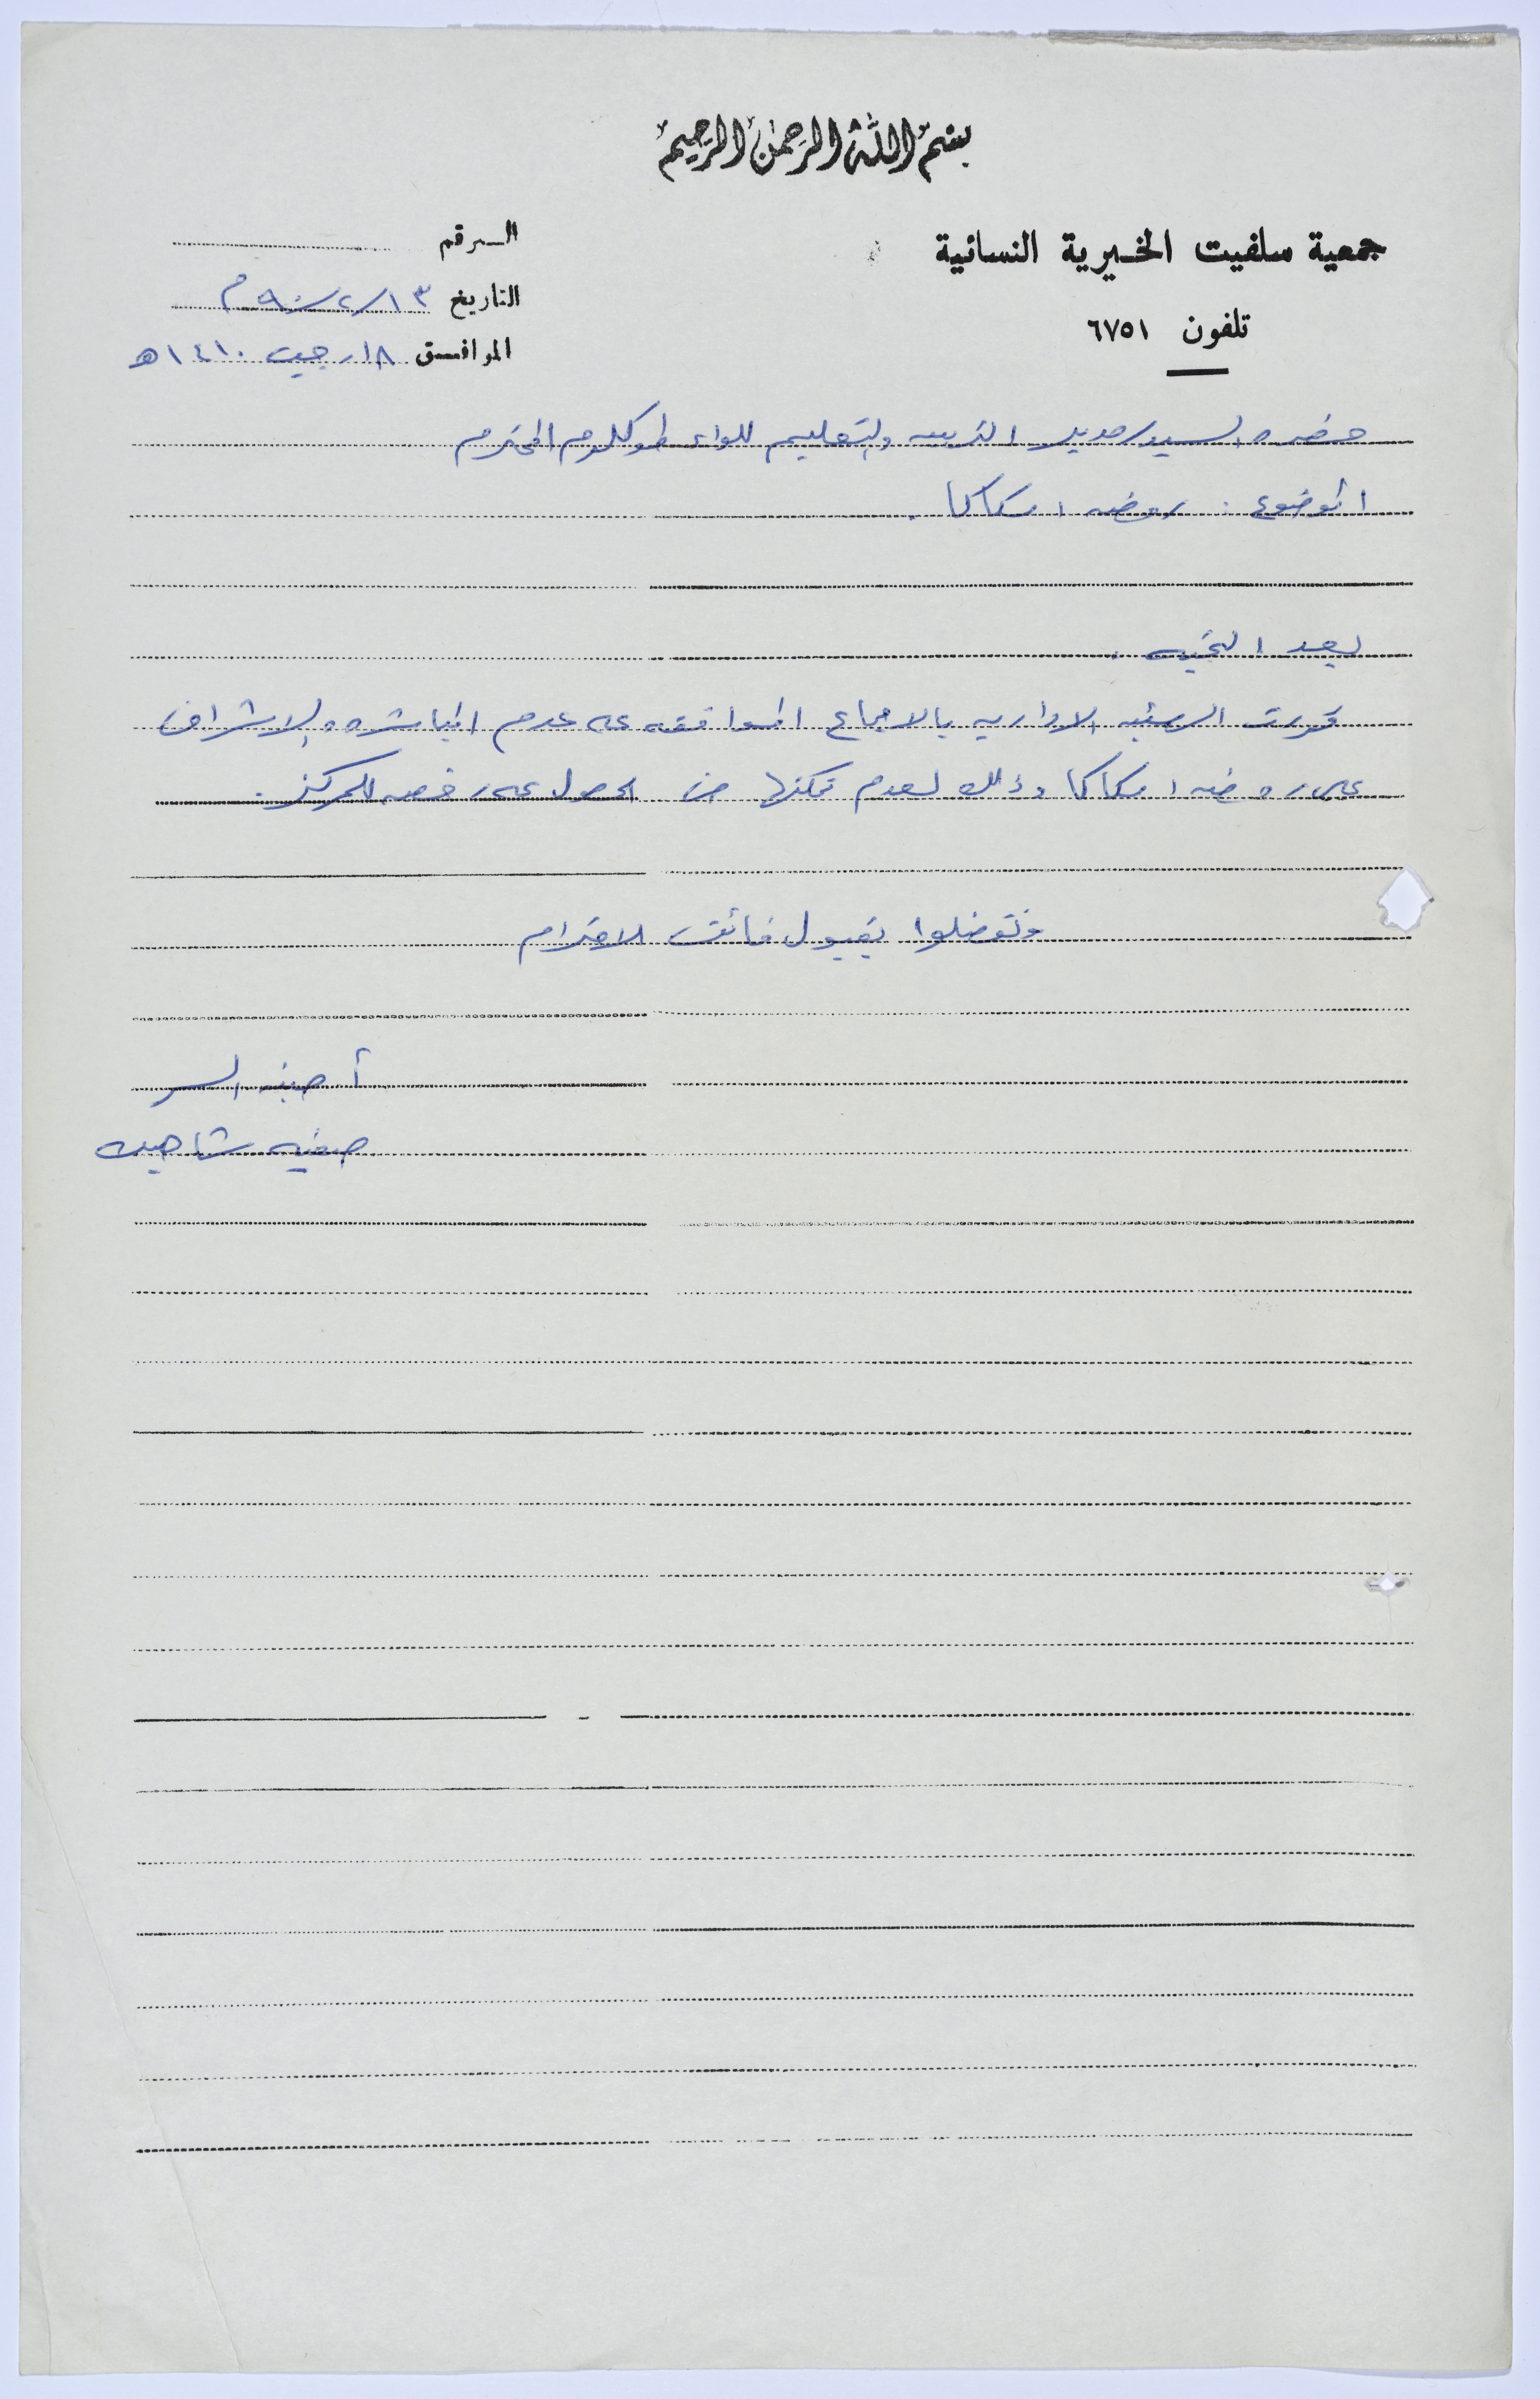 بسم الله الرحمن الرحيم
جمعية سلفيت الخيرية النسائية
تلفون ٦٧٥١
الرقم
التاريخ ١٣/٢/٩٠م
الموافق ١٨ رجب ١٤١٠ه
حضرة السيد مدير التربيه والتعليم للواء طولكرم المحترم
الموضوع : روضه اسكاكا .
بعد التحيه .
قررت الهيئه الاداريه بالاجماع الموافقه على عدم المباشره والاشراف
على روضه اسكاكا وذلك لعدم تمكنها من الحصول على رخصه للمركز .
وتفضلوا بقبول فائق الاحترام
أمينه السر
صفيه شاهين